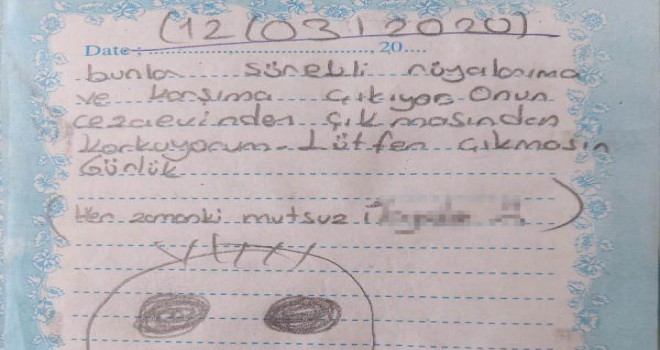 (12/03/2020)
Date: ................, 20....
bunlar sürekli rüyalarıma
ve karşıma çıkıyor. Onun
cezaevinden çıkmasından
korkuyorum. Lütfen çıkmasın
Günlük
(Her zamanki mutsuz